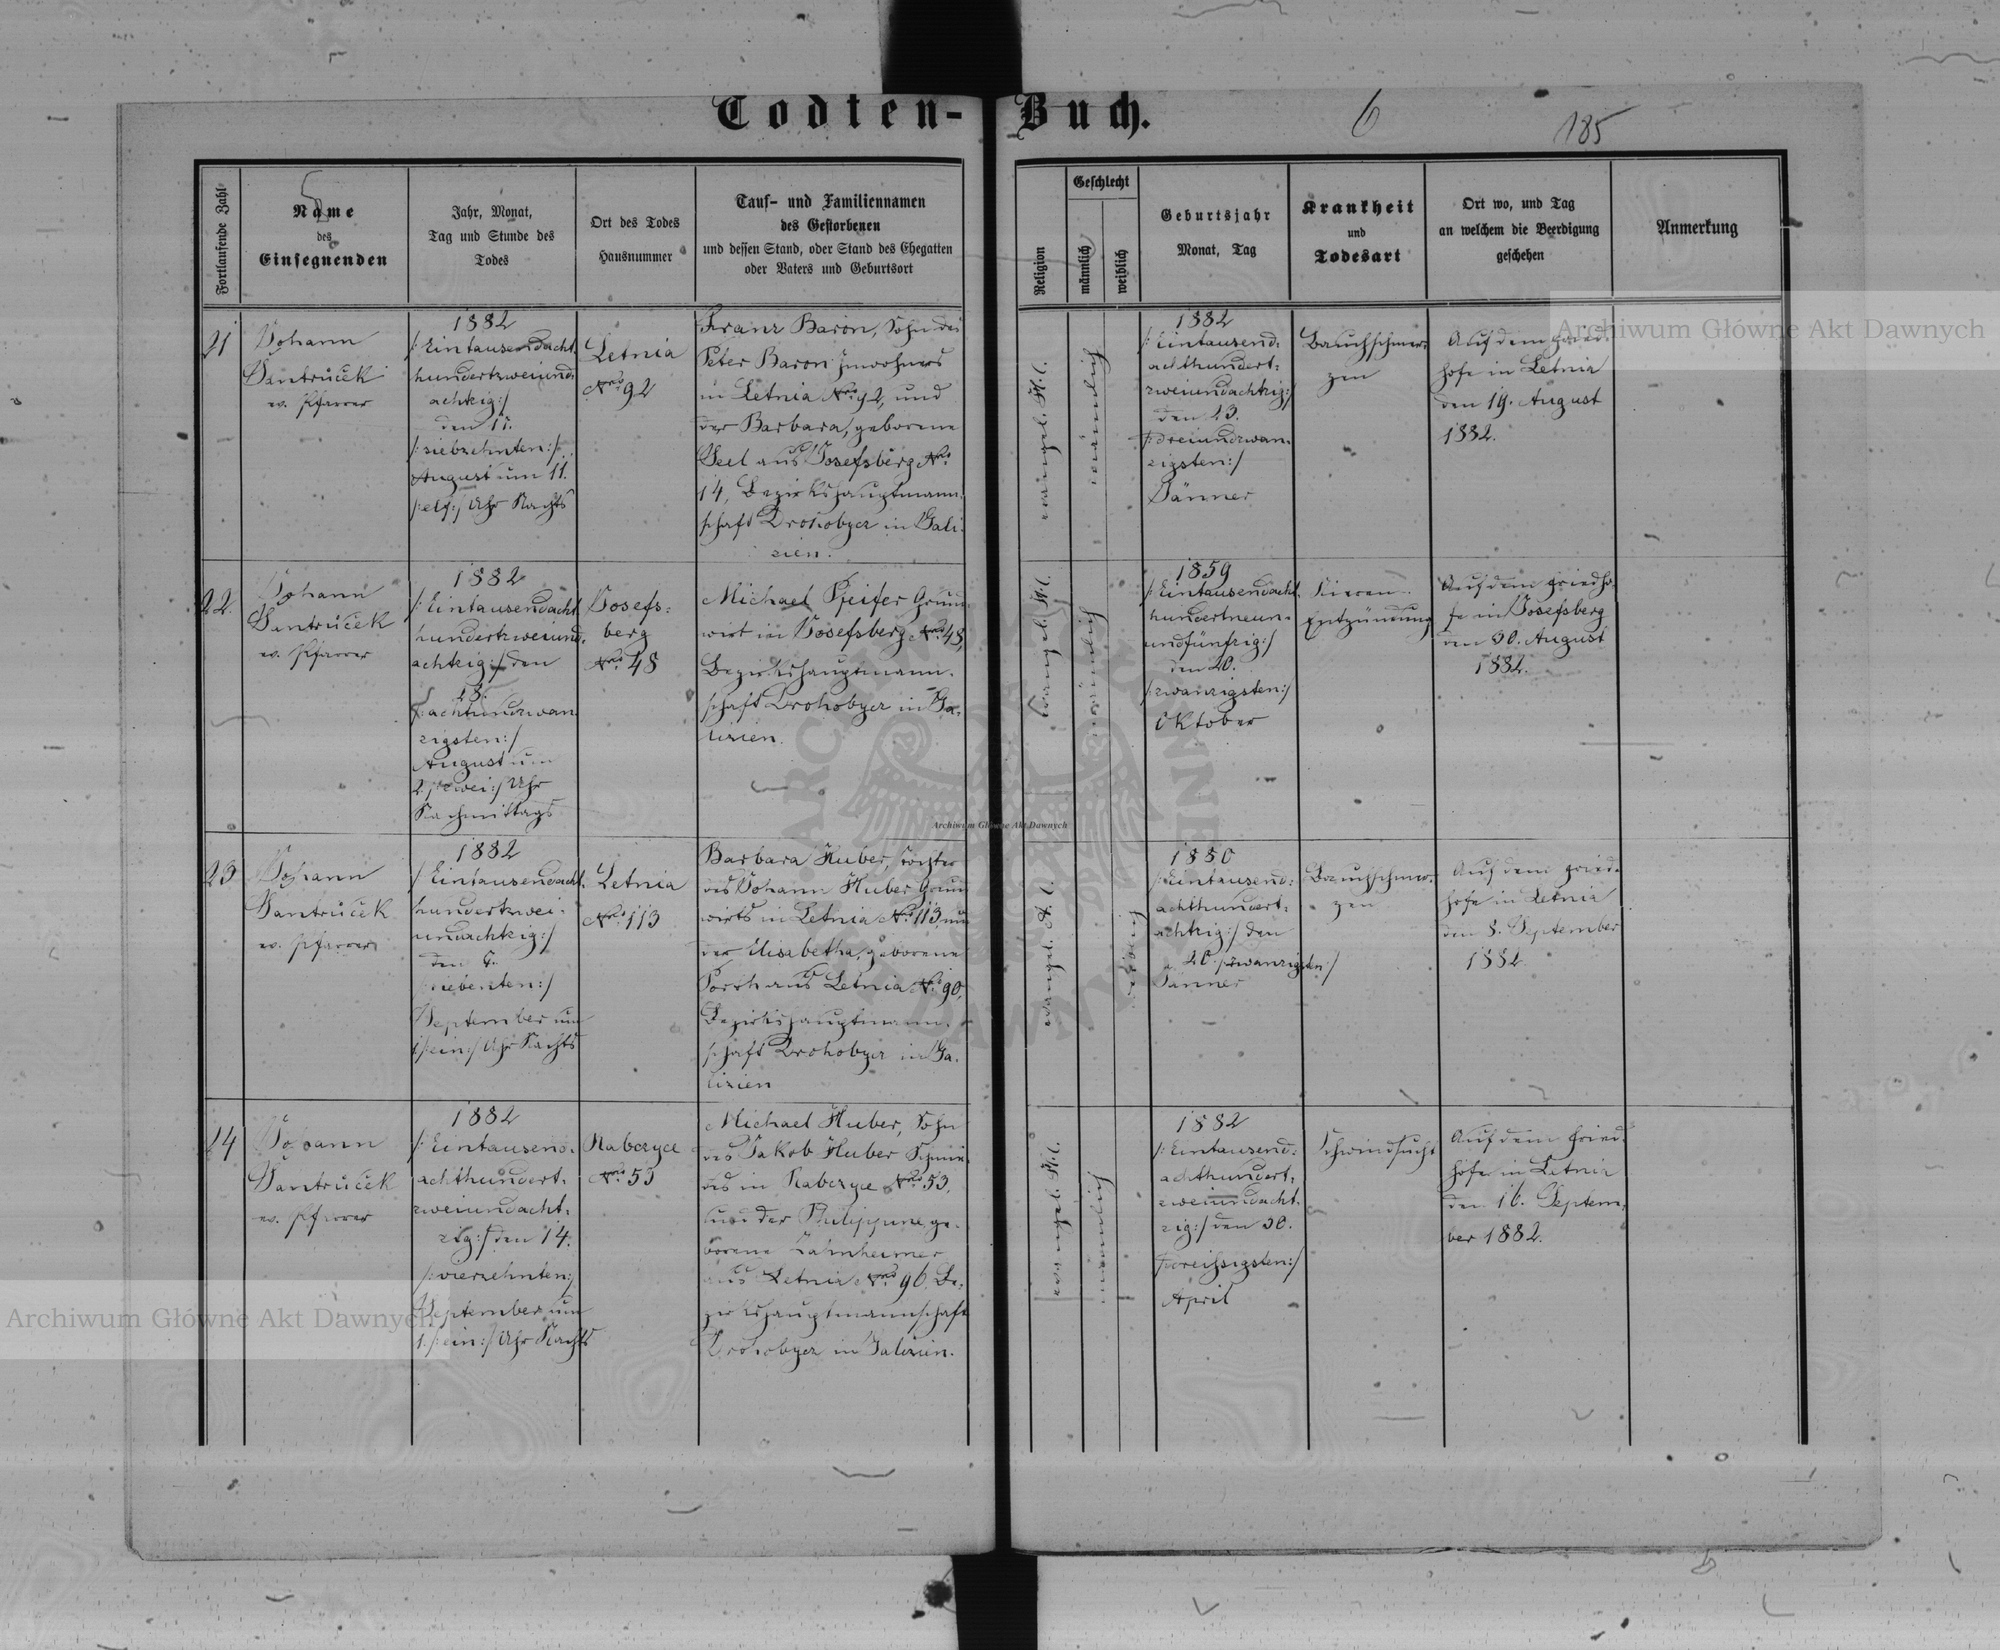 Todten-Buch.
6
185
Fortlaufende Zahl
Name
des
Einsegnenden
Jahr, Monat,
Tag und Stunde des
Todes
Ort des Todes
Hausnummer
Tauf- und Familiennamen
des Gestorbenen
und dessen Stand, oder Stand des Ehegatten
oder Vaters und Geburtsort
Religion
Geschlecht
männlich
weiblich
Geburtsjahr
Monat, Tag
Krankheit
und
Todesart
Ort wo, und Tag
an welchem die Beerdigung
geschehen
Anmerkung
21
Johann
Jantruček
ev. Pfarrer
1882
/:Eintausendacht
hundertzweiund
achtzig:/
den 17.
/:siebzehnten:/
August um 11.
/:elf:/ Uhr Nachts
Letnia
Nro 92
Franz Baron, Sohn des
Peter Baron Inwohners
in Letnia Nro 92, und
der Barbara, geborene
Seel aus Josefsberg Nro
14, Bezirkshauptmann-
schaft Drohobycz in Gali-
zien.
evangel. A. C.
männlich
1882
/:Eintausend:
achthundert:
zweiundachtzig:/
den 23.
/:dreiundzwan-
zigsten:/
Jänner
Bauchschmer-
zen
Auf dem Fried-
hofe in Letnia
den 19. August
1882.
22.
Johann
Jantruček
ev. Pfarrer
1882
/:Eintausendacht
hundertzweiund-
achtzig:/ den
28.
/:achtundzwan
zigsten:/
August um
2./:zwei:/ Uhr
Nachmittags
Josefs:
berg
Nro 48
Michael Pfeifer Grund-
wirt in Josefsberg Nro 48,
Bezirkshauptmann-
schaft Drohobycz in Ga-
lizien.
evangel. A. C.
männlich
1859
/:Eintausendacht
hundertneun-
undfünfzig:/
den 20.
/:zwanzigsten:/
Oktober
Nieren-
Entzündung
Auf dem Friedho-
fe in Josefsberg
den 30. August
1882.
23
Johann
Jantruček
ev. Pfarrer
1882
/:Eintausendacht-
hundertzwei-
undachtzig:/
den 7.
/:siebenten:/
September um
1/:ein:/ Uhr Nachts
Letnia
Nro 113
Barbara Huber, Tochter
des Johann Huber Grund
wirts in Letnia Nro 113, und
der Elisabetha, geborene
aus Letnia Nro 90,
Bezirkshauptmann-
schaft Drohobycz in Ga-
lizien
evangel. A. C.
weiblich
1880
/:Eintausend:
achthundert:
achtzig:/ den
20. /:zwanzigsten:/
Jänner
Bauchschmer-
zen
Auf dem Fried-
hofe in Letnia
den 8. September
1882
24
Johann
Jantruček
ev. Pfarrer
1882
/:Eintausend:
achthundert:
zweiundacht:
zig:/ den 14.
/:vierzehnten:/
September um
1./:ein:/ Uhr Nachts
Rabczyce
Nro 53
Michael Huber, Sohn
des Jakob Huber Schmie-
des in Rabczyce Nro 53,
und der Philippine, ge-
borene
aus Letnia Nro 96, Be-
zirkshauptmannschaft
Drohobycz in Galizien.
evangel. A. C.
männlich
1882
/:Eintausend:
achthundert:
zweiundacht:
zig:/ den 30.
/:dreissigsten:/
April
Schwindsucht
Auf dem Fried-
hofe in Letnia
den 16. Septem-
ber 1882.
Archiwum Główne Akt Dawnych
Archiwum Główne Akt Dawnych
Archiwum Główne Akt Dawnych